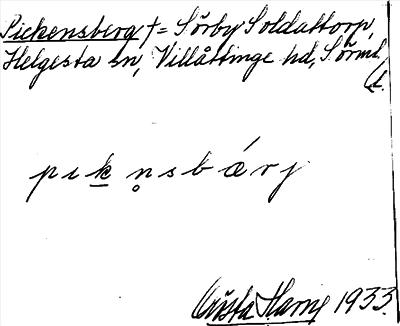 Pickensberg †= Sörby Soldattorp,
Helgesta sn, Villåttinge hd, Sörml.
pık̲n̥sbárj
Harne 1933.